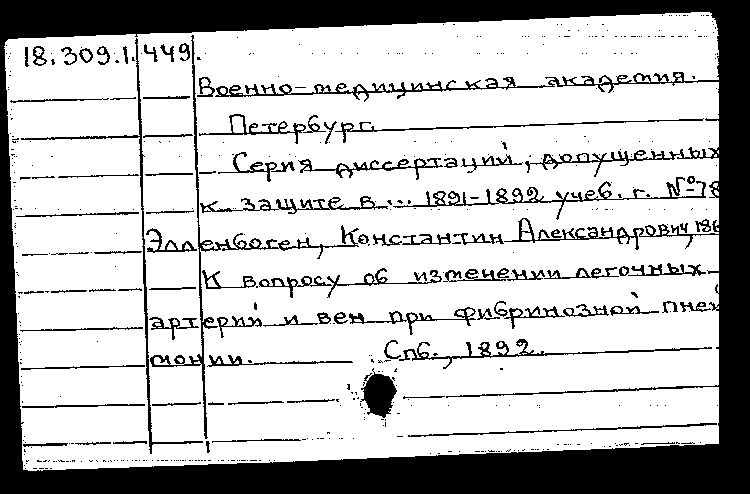 18.309.1.449.
Военно-медицинская академия.
Петербург.
Серия диссертаций, допущенных
к защите в ... 1891-1892 учеб. г. № 78
Элленбоген, Константин Александрович, 186
К вопросу об изменении легочных
артерий и вен при фибринозной пней
монии. Спб., 1892.